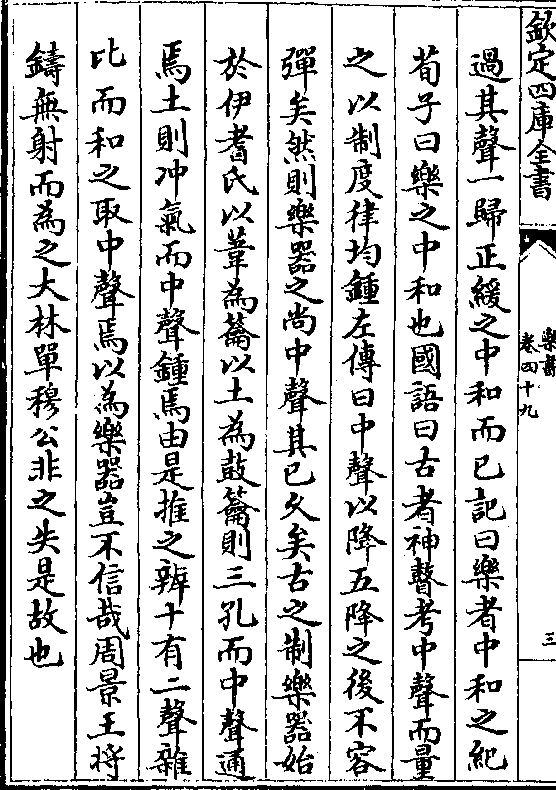 欽定四庫全書
樂書
卷四十九
三
過其聲一歸正緩之中和而已記曰樂者中和之紀
荀子曰樂之中和也國語曰古者神瞽考中聲而量
之以制度律均鍾左傳曰中聲以降五降之後不容
彈矣然則樂器之尚中聲其已久矣古之制樂器始
於伊耆氏以葦為籥以土為鼓籥則三孔而中聲通
焉土則冲氣而中聲鍾焉由是推之辨十有二聲雜
比而和之取中聲焉以為樂器豈不信哉周景王將
鑄無射而為之大林單穆公非之失是故也